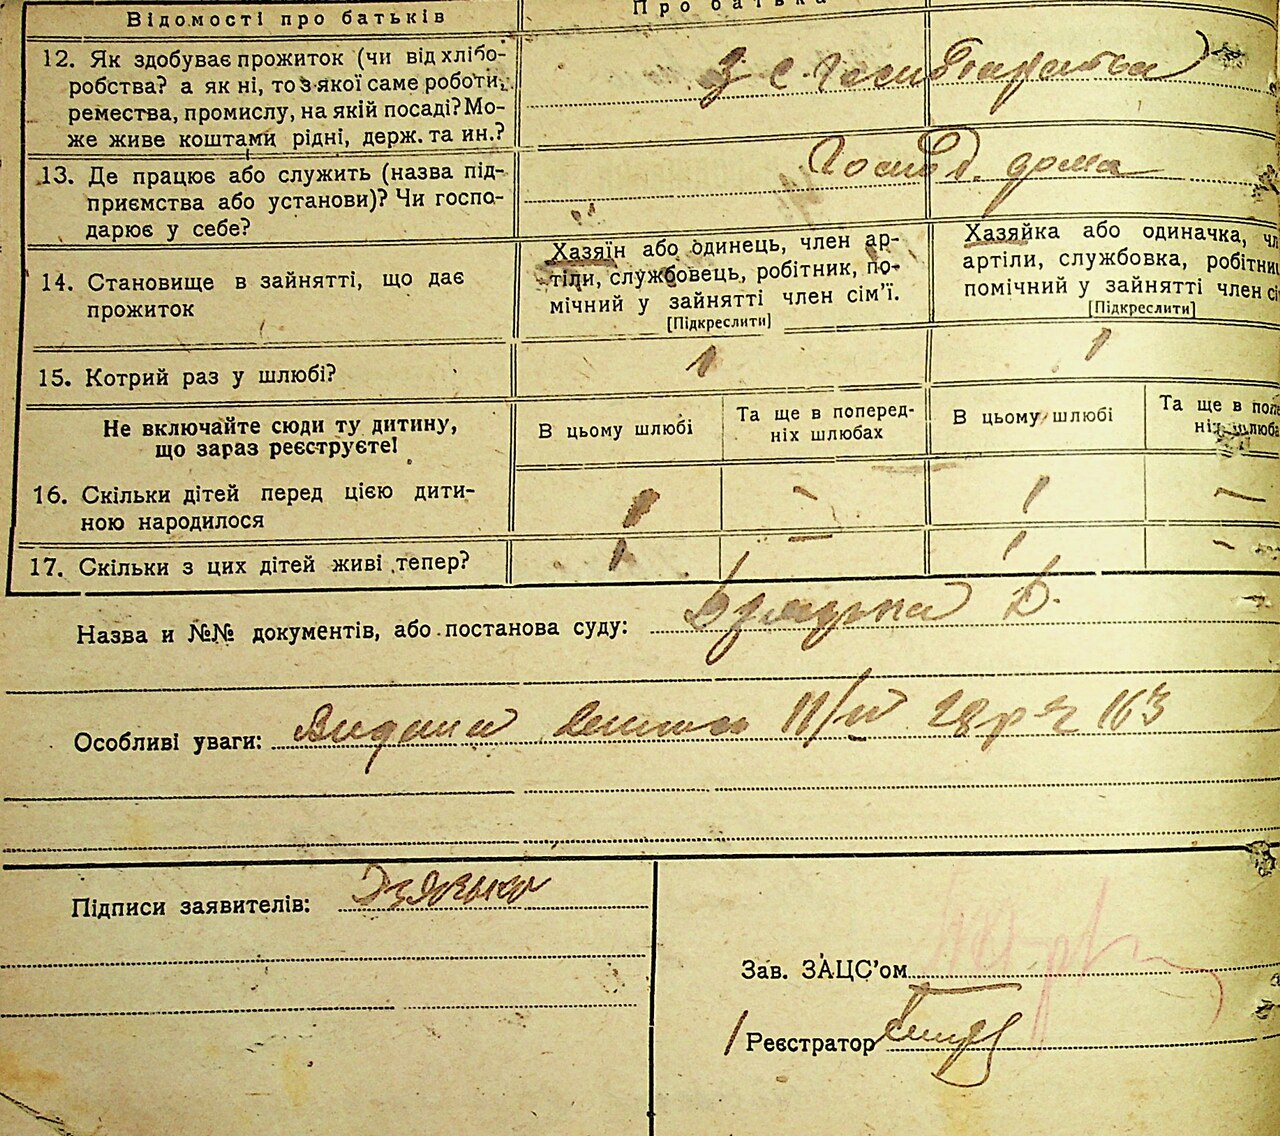 Відомості про батьків
Про батька
12. Як здобуває прожиток (чи від хлібо-
робства? а як ні, то з якої саме роботи,
ремества, промислу, на якій посаді? Мо-
же живе коштами рідні, держ. та ин.?
З с. господарства
13. Де працює або служить (назва під-
приємства або установи)? Чи госпо-
дарює у себе?
Господ. дома
14. Становище в зайнятті, що дає
прожиток
Хазяїн або одинець, член ар-
тіли, службовець, робітник, по-
мічний у зайнятті член сім'ї.
[Підкреслити]
Хазяйка або одиначка, чл
артіли, службовка, робітниц
помічний у зайнятті член сі
[Підкреслити]
15. Котрий раз у шлюбі?
1
1
Не включайте сюди ту дитину,
що зараз реєструєте!
В цьому шлюбі
Та ще в поперед-
ніх шлюбах
В цьому шлюбі
Та ще в попе
ніх шлюба
16. Скільки дітей перед цією дити-
ною народилося
1
–
1
–
17. Скільки з цих дітей живі тепер?
1
–
1
–
Назва и №№ документів, або постанова суду:
Особливі уваги: Видана 11/IV 28 р 163
Підписи заявителів:
Зав. ЗАЦС'ом
Реєстратор